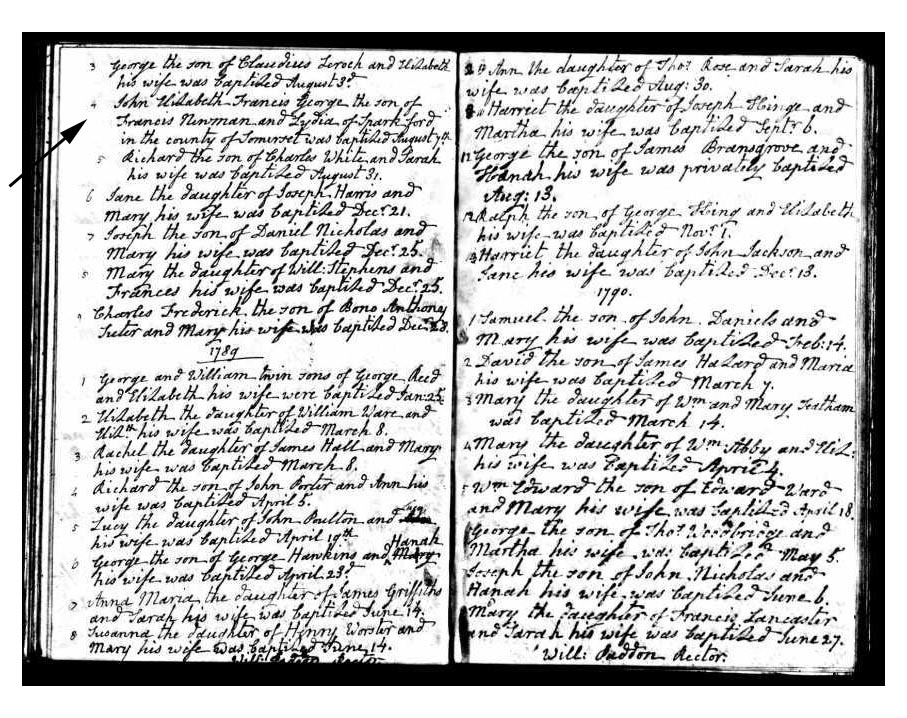 3 George the son of Claudius Leroch and Elizabeth
his wife was baptized August 3d
4 John Elizabeth Francis George the son of
Francis Newman and Lydia of Sparkford
in the county of Somerset was baptized August 7th
5 Richard the son of Charles White and Sarah
his wife was baptized August 31.
6 Jane the daughter of Joseph Harris and
Mary his wife was baptized Decr. 21.
7 Joseph the son of Daniel Nicholas and
Mary his wife was baptized Decr. 25.
8 Mary the daughter of Will: Stephens and
Frances his wife was baptized Decr. 25.
9 Charles Frederick the son of Bono Anthony
and Mary his wife was baptized Decr. 28.
1789
1 George and William twin sons of George Reed
and Elizabeth his wife were baptized Jan: 25
2 Elizabeth the daughter of William Ware and
Elizth his wife was baptized March 8.
3 Rachel the daughter of James Hall and Mary
his wife was baptized March 8.
4 Richard the son of John Porter and Ann his
wife was baptized April 5.
5 Lucy the daughter of John Poulton and Lucy
his wife was baptized April 19th
Hanah
6 George the son of George Hawkins and Mary
his wife was baptized April 23d
7 Anna Maria the daughter of James Griffiths
and Sarah his wife was baptized June 14.
8 Susanna the daughter of Henry Worster and
Mary his wife was baptized June 14.
Will: Paddon Rector
9 Ann the daughter of Thos. Rose and Sarah his
wife was baptized Aug: 30.
Harriet the daughter of Joseph Hinge and
Martha his wife was baptized Septr. 6.
11 George the son of James Bransgrove and
Hanah his wife was privately baptized
Aug: 13.
12 Ralph the son of George Hing and Elizabeth
his wife was baptized Novr. 1.
13 Harriet the daughter of John Jackson and
Jane hes wife was baptized Decr. 13.
1790.
1 Samuel the son of John Daniels and
Mary his wife was baptized Feb: 14.
2 David the son of James Hazard and Maria
his wife was baptized March 7.
3 Mary the daughter of Wm and Mary Featham
was baptized March 14.
4 Mary the daughter of Wm. Abby and Eliz:
his wife was baptized April 4.
Wm Edward the son of Edward Ward
and Mary his wife was baptized April 18
George the son of Thos. Woodbridge and
Martha his wife was baptized May 5.
Joseph the son of John Nicholas and
Hanah his wife was baptized June 6.
Mary the daughter of Francis Lancaster
and Sarah his wife was baptized June 27.
Will: Paddon Rector.